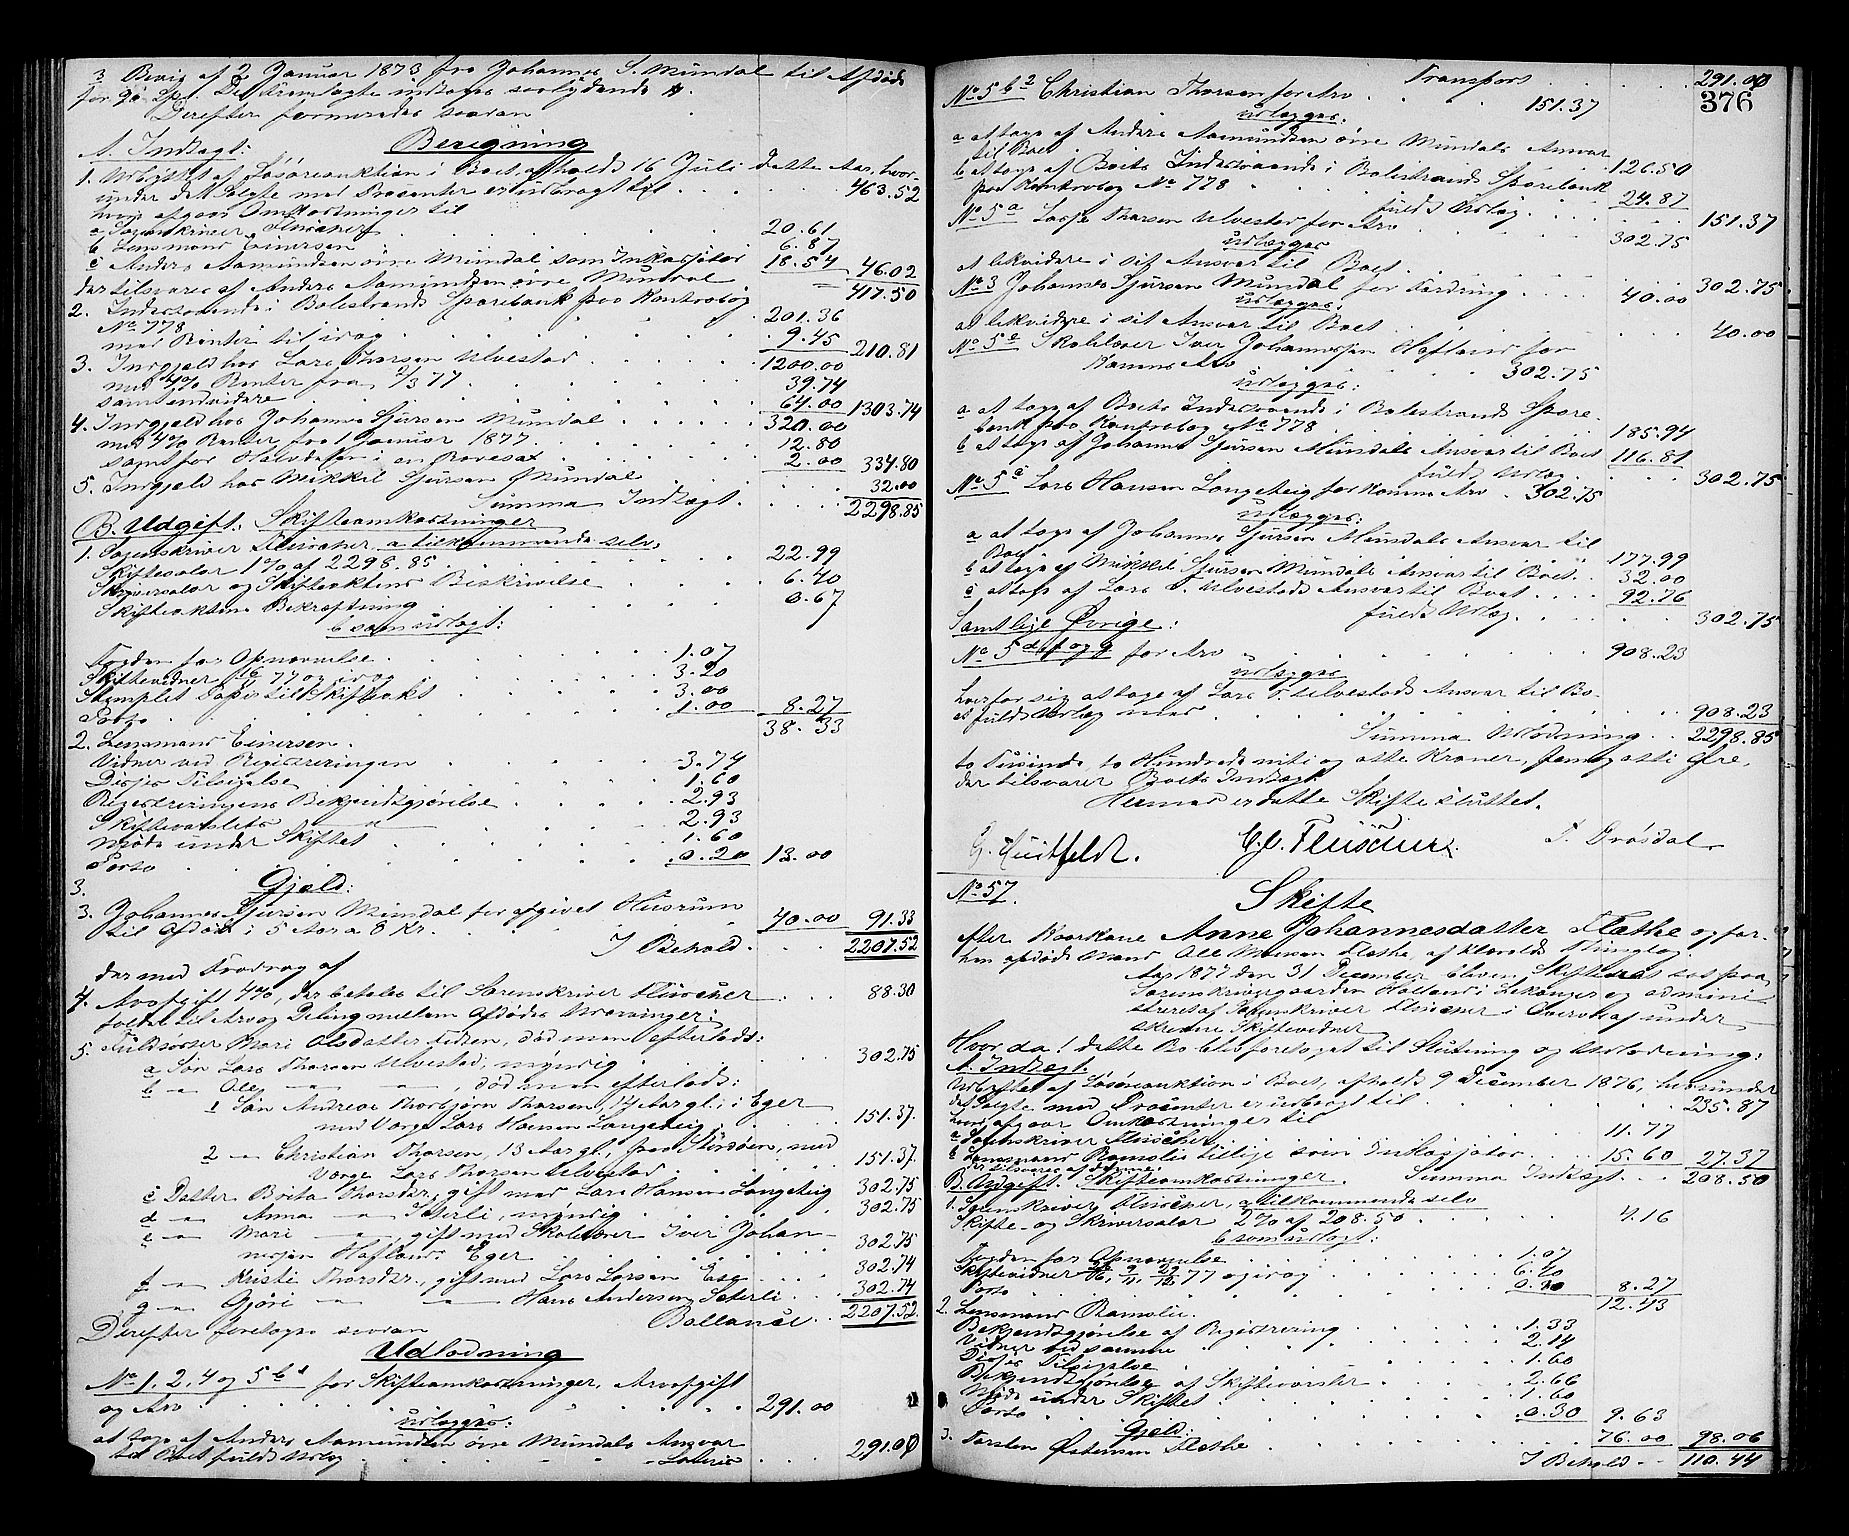 3 Bevis af 2 Januar 1873 fra Johannes S. Mundal til Afdøde
for 90 Spd. De fremlagte indtages saalydende
Derefter formeredes saadan
Beregning
A. Indtægt:
1. Udbyttet af Løsøreauktion i Boet afholdt 16 Juli dette Aar, hvor-
under det Solgte med Prosenter er udbragt til . . . 463.52
hvor afgaar Omkostninger til
a Sorenskriver Fleischer . . . 20.61
b Lensmand Einersen . . . 6.87
c Anders Aamundsen øvre Mundal som Inkassator 18.54 46.02
der tilsvares af Anders Aamundsen øvre Mundal . . . 417.50
2. Indestaaende i Balestrands Sparebank paa Kontrabog
No 778 . . . 201.36
med Renter til idag . . . 9.45 210.81
3. Indgjeld hos Lars Thorsen Ulvestad . . . 1200.00
med 4% Renter fra 2/3 77 . . . 39.74
samt endvidere . . . 64.00 1303.74
4. Indgjeld hos Johannes Sjursen Mundal . . . 320.00
med 4% Renter fra 1 Januar 1877 . . . 12.80
samt for Halvdelen i en . . . 2.00 334.80
5. Indgjeld hos Mikkel Sjursen Mundal . . . 32.00
Summa Indtægt . . . 2298.85
B. Udgift. Skifteomkostninger
1. Sorenskriver Fleischer a tilkommende selv,
Skiftesalær 1% af 2298.85 . . . 22.99
Skriversalær og Skifteaktens Beskrivelse . . . 6.40
Skifteaktens Bekræftning . . . 0.67
b som udlagt:
Fogden for Opnævnelse . . . 1.07
Skiftevidner 77 og idag . . . 3.20
Stemplet Papir til Skifteakt . . . 3.00
Porto . . . 1.00 8.27
38.33
2. Lensmand Einersen.
Vidner ved Registreringen . . . 3.74
Disses Tilsigelse . . . 1.60
Registreringens Bekjendtgjørelse . . . 2.93
Skiftevarslets — " — . . . 2.93
Møde under Skiftet . . . 1.60
Porto . . . 0.20 13.00
3. Gjæld:
3. Johannes Sjursen Mundal for afgivet Husrum
til Afdøde i 5 Aar a 8 kr. . . . 40.00 91.33
I Behold . . . 2207.52
der med Fradrag af
4. Arveafgift 4%, der betales til Sorenskriver Fleischer . . . 88.30
faldt til Arv og Deling mellem Afdødes Arvinger:
5. Fuldsøster Mari Olsdatter , død men efterladt:
a Søn Lars Thorsen Ulvestad, myndig . . . 302.75
b — " — Ole — " — — " —, død men efterladt:
1 Søn Andreas Thorbjørn Thorsen, 14 Aar gl. i Eger
med Værge Lars Hansen Langeteig . . . 151.37.
2 — " — Christian Thorsen, 13 Aar gl., paa Stordøen, med
Værge Lars Thorsen Ulvestad . . . 151.37.
c Datter Brita Thorsdtr. gift med Lars Hansen Langeteig 302.75
d — " — Anna — " — Sæterli, myndig . . . 302.75
e — " — Mari — " —, gift med Skolelærer Iver Johan-
nesjen Hafland, Eger . . . 302.75
f — " — Kristi Thorsdtr., gift med Lars Larsen Ese . . . 302.74
g — " — Gjøri — " — — " — Hans Andersen Sæterli . . . 302.74
Ballance . . . 2207.52
Derefter foretages saadan
Udlodning
No 1, 2, 4 og 5 b1 for Skifteomkostninger, Arveafgift
og Arv . . . 291.00
udlægges:
at tage af Anders Aamundsen øvre Mundals Ansvar
til Boet fuldt Udlæg . . . 291.00
Lateris
376
Transport . . . 291.00
No 5 b2 Christian Thorsen for Arv . . . 151.37
udlægges:
a at tage af Anders Aamundsen øvre Mundals Ansvar
til Boet . . . 126.50
b at tage af Boets Indestaaende i Balestrands Sparebank
paa Kontrabog No 778 . . . 24.87
fuldt Udlæg . . . 151.37
No 5 a Lasse Thorsen Ulvestad for Arv . . . 302.75
udlægges
at likvidere i sit Ansvar til Boet . . . 302.75
No 3 Johannes Sjursen Mundal for Fordring . . . 40.00
udlægges:
at likvidere i sit Ansvar til Boet . . . 40.00
No 5 e Skolelærer Iver Johannesjen Hafland for
Konens Arv . . . 302.75
udlægges:
a at tage af Boets Indestaaende i Balestrands Spare-
bank paa Kontrabog No 778 . . . 185.94
b at tage af Johannes Sjursen Mundals Ansvar til Boet 116.81
fuldt Udlæg . . . 302.75
No 5 c Lars Hansen Langeteig for Konens Arv . 302.75
udlægges:
a at tage af Johannes Sjursen Mundals Ansvar til
Boet . . . 177.99
b at tage af Mikkel Sjursen Mundals Ansvar til Boet . . . 32.00
c at tage af Lars T. Ulvestads Ansvar til Boet . . . 92.76
fuldt Udlæg . . . 302.75
Samtlige Øvrige:
No 5 d f og g for Arv . . . 908.23
udlægges
hver for sig at tage af Lars T. Ulvestads Ansvar til Bo-
et fuldt Udlæg med . . . 908.23
Summa Udlodning . . . 2298.85
to Tusinde to Hundrede niti og otte Kroner, fem og otti Øre,
der tilsvarer Boets Indtægt.
Hermed er dette Skifte sluttet.
G. Huitfeldt. C. O. Fleischer. T. Drøsdal
No 57.
Skifte
efter Kaarkone Anne Johannesdatter Flæthe og for-
hen afdøde Mand Ole Monsen Flæthe, af Thinglag.
Aar 1877 den 31 December blev Skifteret sat paa
Sorenskrivergaarden Holland i Lekanger og admini-
streret af Sorenskriver Fleischer i Overvær af under-
skrevne Skiftevidner
Hvor da! dette Bo blev foretaget til Slutning og Udlodning:
A. Indtægt.
Udbyttet af Løsøreauktion i Boet, afholdt 9 December 1876, hvorunder
det Solgte med Procenter er udbragt til . . . 235.87
hvoraf gaar Omkostninger til
a Sorenskriver Fleischer . . . 11.77
b Lensmand Ramsli tillige som Inkassator . . . 15.60 27.37
der tilsvares af denne. Summa Indtægt . . . 208.50
B. Udgift. Skifteomkostninger.
1. Sorenskriver Fleischer, a tilkommende selv
Skifte- og Skriversalær 2% af 208.50 . . . 4.16
b som udlagt:
Fogden for Opnævnelse . . . 1.07
Skiftevidner 77 og idag . . . 6.40
Porto . . . 0.80 8.27
12.43
2. Lensmand Ramsli.
Bekjendtgjørelse af Registrering . . . 1.33
Vidner ved samme . . . 2.14
Disses Tilsigelse . . . 1.60
Bekjendtgjørelse af Skiftevarsler . . . 2.66
Møde under Skiftet . . . 1.60
Porto . . . 0.30 9.63
Gjæld:
3. Torsten Østensen Flæthe . . . 76.00 98.06
I Behold . . . 110.44